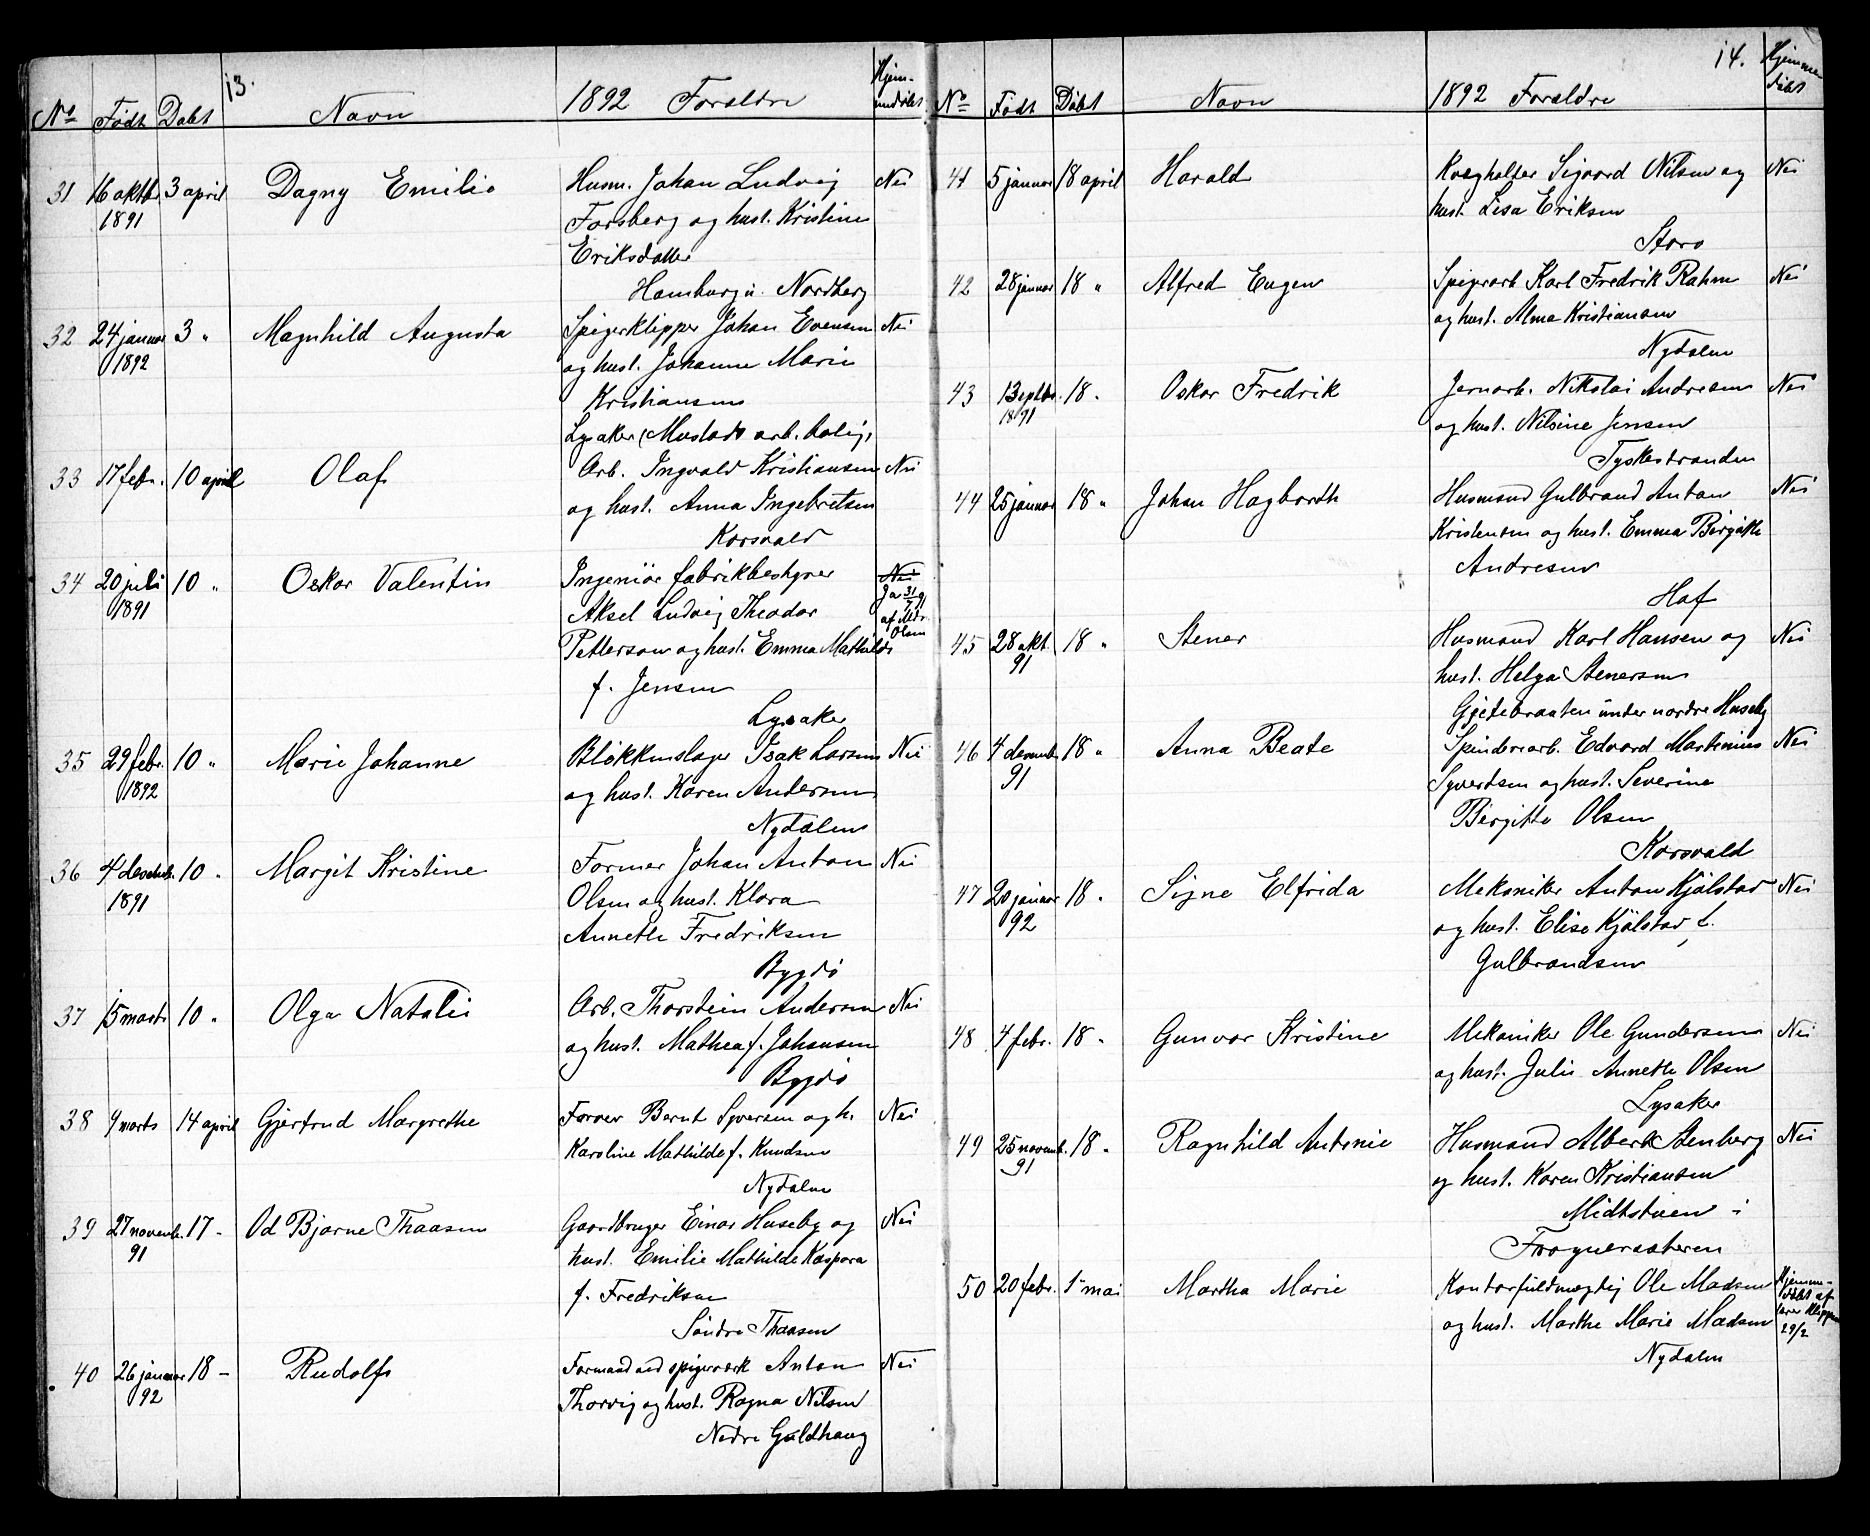 13.
No Født Døbt Navn 1892 Forældre Hjemmedøbt
31 16 oktbr 3 april Dagny Emilie Husm. Johan Ludvig Nei
1891 Forsberg og hust. Kristine
Eriksdatter
Hamburg u. Nordberg
32 24 januar 3 " Magnhild Augusta Spigerklipper Johan Evensen Nei
1892 og hust. Johanne Marie
Kristiansen
Lysaker (Mustads arb. bolig)
33 17 febr. 10 april Olaf Arb. Ingvald Kristiansen Nei
og hust. Anna Ingebretsen
Korsvald
34 20 juli 10 " Oskar Valentin Ingeniør fabrikbestyrer Nei
1891 Aksel Ludvig Theodor Ja 31/7 91
Petterson og hust. Emma Mathilde af Olsen
f. Jensen
Lysaker
35 29 febr. 10 " Marie Johanne Blokkmslager Isak Larsen Nei
1892 og hust. Karen Andersen
Nydalen
36 4 decemb. 10 " Margit Kristine Former Johan Anton Nei
1891 Olsen og hust. Klara
Annethe Fredriksen
Bygdø
37 15 marts 10 " Olga Natalie Arb. Thorstein Andersen Nei
og hust. Mathea f. Johansen
Bygdø
38 9 marts 14 april Gjertrud Margrethe Farver Bernt Syversen og h. Nei
Karoline Mathilde f. Knudsen
Nydalen
39 27 novemb. 17 - Od Bjarne Thaasen Gaardbruger Einar Huseby og Nei
91 hust. Emilie Mathilde Kaspara
f. Fredriksen
Søndre Thaasen
40 26 januar 18 - Rudolf Formand ved spigerverk Anton Nei
92 Thorvig og hust. Ragna Nilsen
Nedre Guldhaug
14.
No Født Døbt Navn 1892 Forældre Hjemmedøbt
41 5 januar 18 april Harald Kvægholter Sigvard Nilsen og Nei
hust. Lisa Eriksen
Storo
42 28 januar 18 " Alfred Eugen Spigerarb. Karl Fredrik Rahm Nei
og hust. Alma Kristiansen
Nydalen
43 13 septbr. 18 " Oskar Fredrik Jernarb. Nikolai Andresen Nei
1891 og hust. Nilsine Jensen
Tyskestranden
44 25 januar 18 " Johan Hagbarth Husmand Gulbrand Anton Nei
Kristensen og hust. Emma Birgitte
Andresen
Hof
45 28 okt. 18 " Stener Husmand Karl Hansen og Nei
91 hust. Helga Stenersen
Gjetebraaten under nordre Huseby
46 4 decemb. 18 " Anna Beate Spinderiarb. Edvard Martinius Nei
91 Syvertsen og hust. Severine
Birgitte Olsen
Korsvald
47 20 januar 18 " Signe Elfrida Mekaniker Anton Kjølstad Nei
92 og hust. Elise Kjølstad, f.
Gulbrandsen
48 4 febr. 18 " Gunvor Kristine Mekaniker Ole Gundersen Nei
og hust. Julie Annethe Olsen
Lysaker
49 25 novemb. 18 " Ragnhild Antonie Husmand Albert Stenberg Nei
91 og hust. Karen Kristiansen
Midtstuen i
Frognersæteren
50 20 febr. 1 mai Martha Marie Kontorfuldmægtig Ole Madsen Hjemmedøbt af
og hust. Marthe Marie Madsen lærer Klippen 29/2
Nydalen